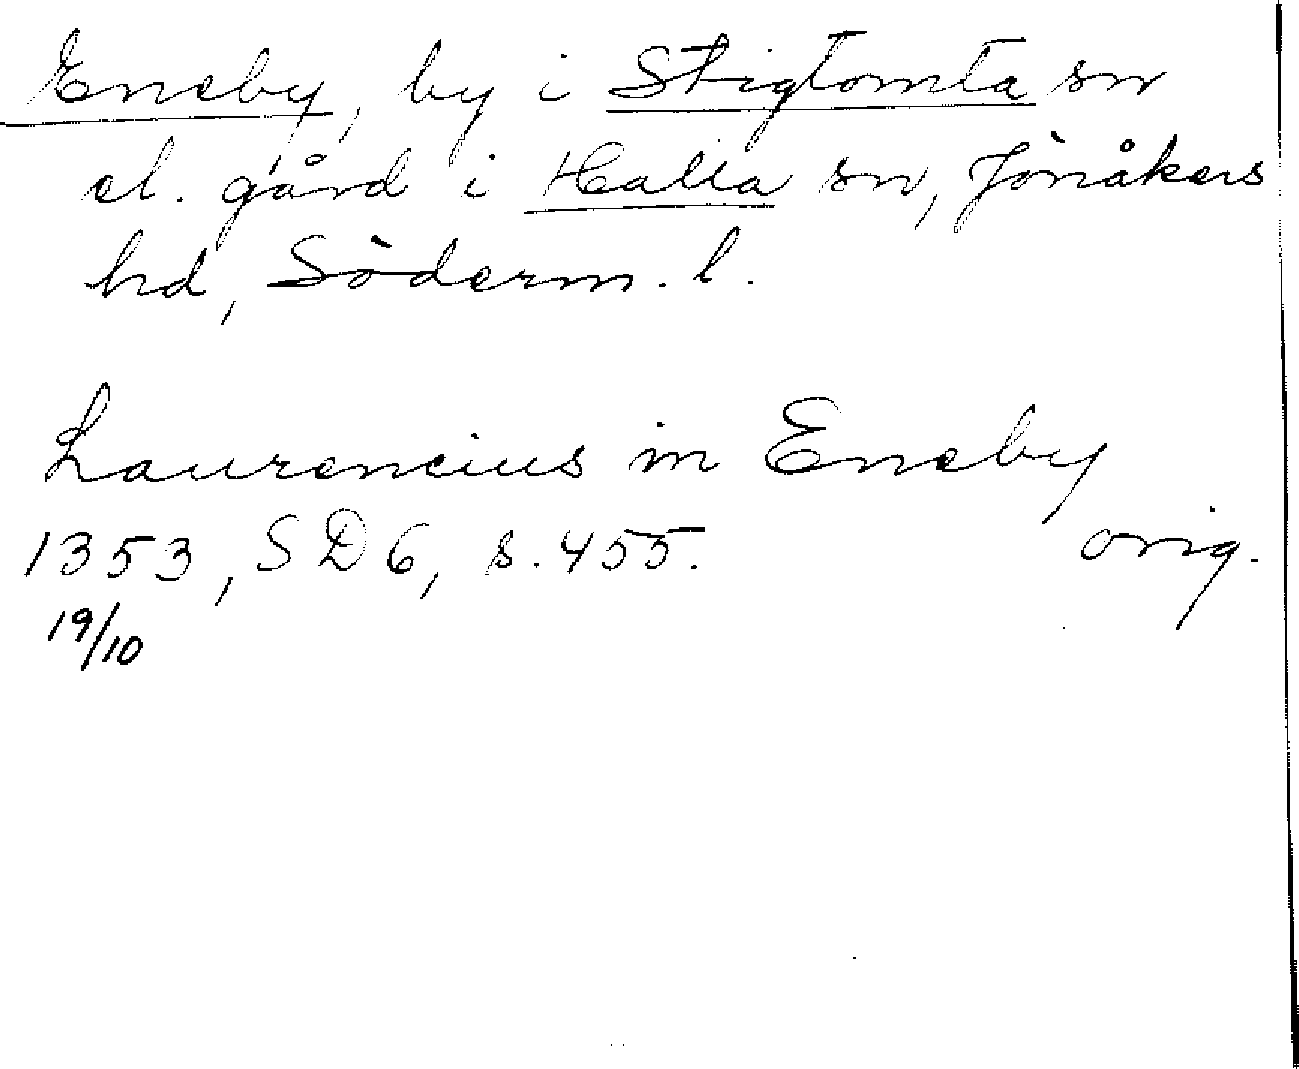 Eneby, by i Stigtomta sn
el. gård i Halla sn, Jönåkers
hd, Söderm. l.
Laurencius in Eneby
1353, SD 6, s. 455. orig.
19/10